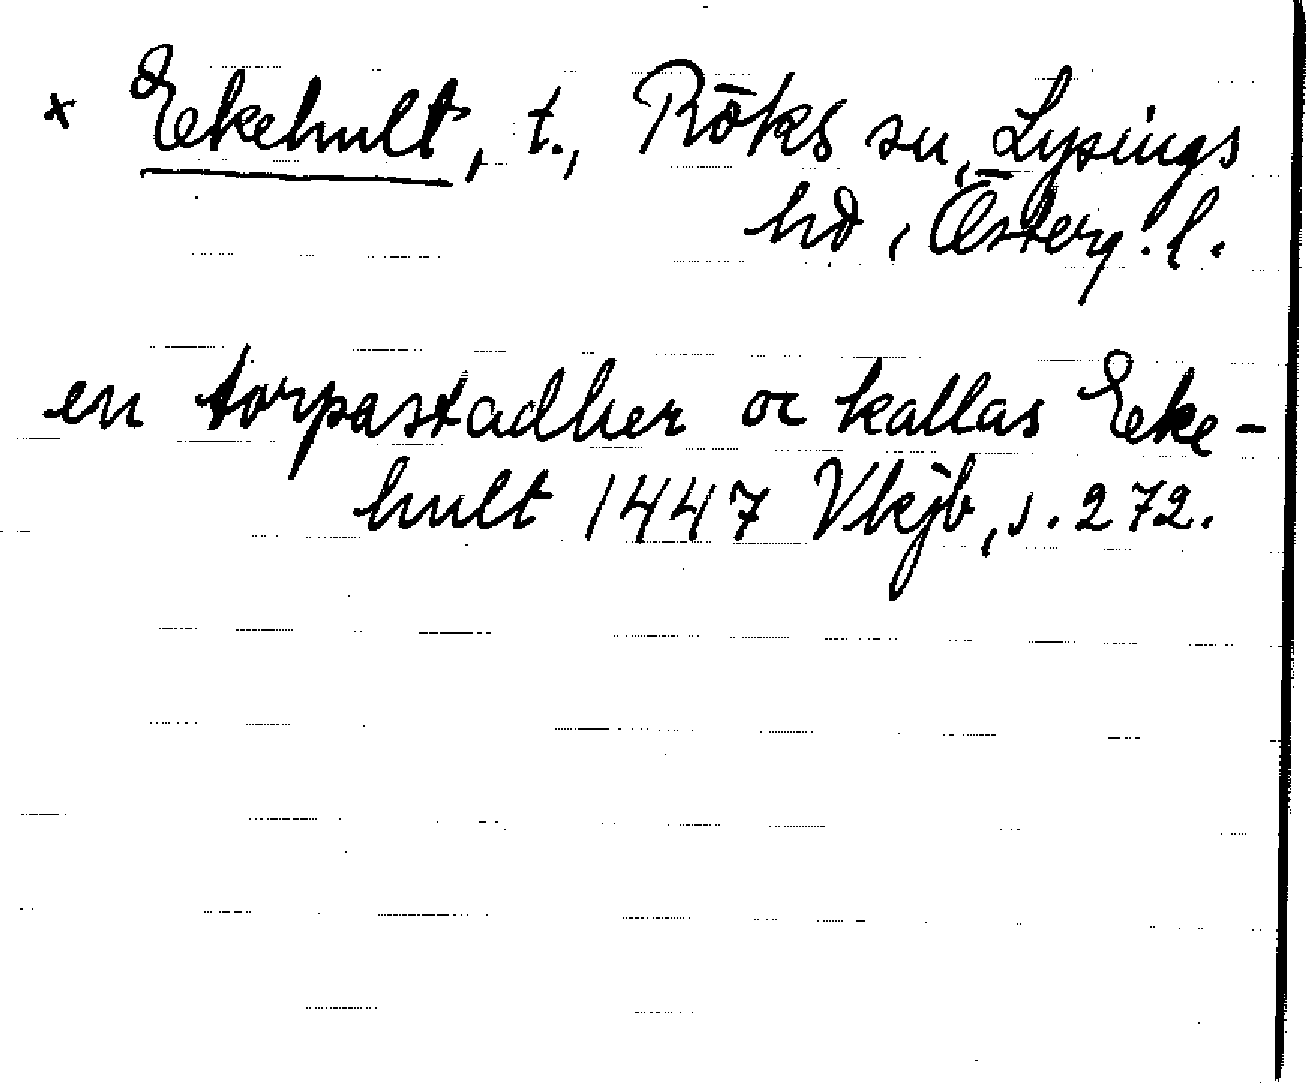 x Ekehult, t., Röks sn, Lysings
hd, Österg. l.
en torpastadher oc kallas Eke-
hult 1447 Vkjb, s. 272.